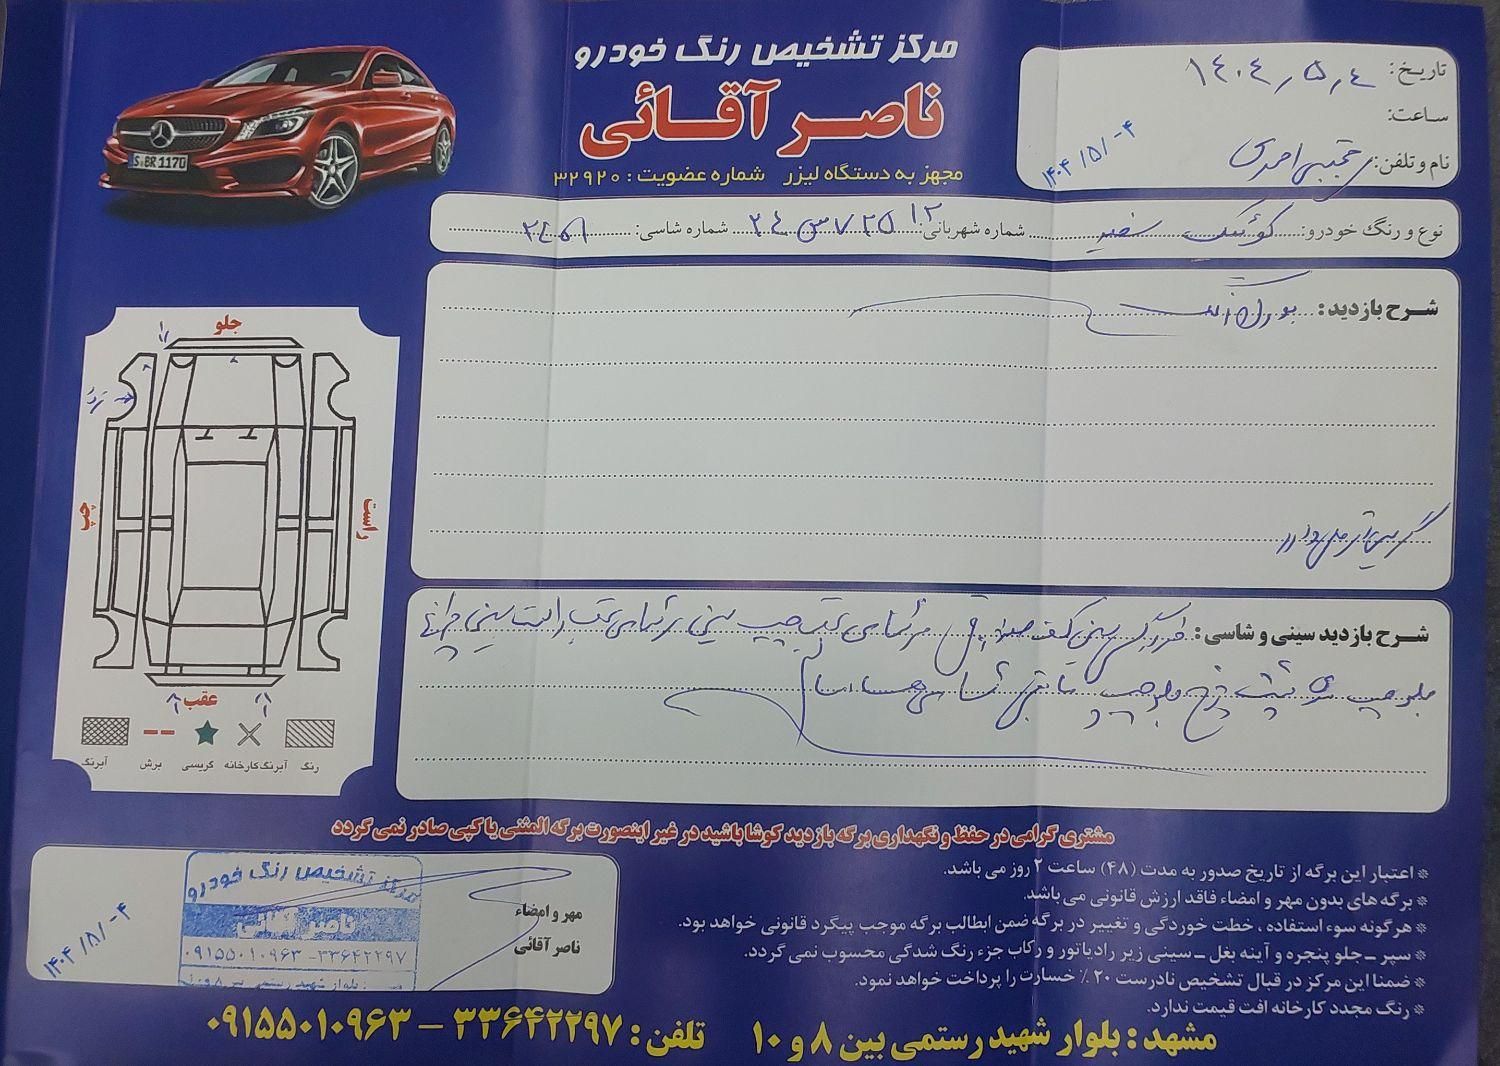 مرکز تشخیص رنگ خودرو
ناصر آقائی
مجهز به دستگاه لیزر شماره عضویت : ۳۲۹۲۰
تاریخ: ۱۴۰۴/۵/۴
ساعت:
نام و تلفن: مجتبی احمدی
۱۴۰۴/۵/-۴
S·BR 1170
نوع و رنگ خودرو: کوئیک سفید شماره شهربانی: ۱۲ ۲۴ س ۷۲۵ شماره شاسی:
شرح بازدید: بدون رنگ است
شرح بازدید سینی و شاسی:
جلو
چپ
راست
عقب
رنگ آبرنگ کارخانه گریسی برش آبرنگ
مشتری گرامی در حفظ و نگهداری برگه بازدید کوشا باشید در غیر اینصورت برگه المثنی یا کپی صادر نمی گردد
* اعتبار این برگه از تاریخ صدور به مدت (۴۸) ساعت ۲ روز می باشد.
* برگه های بدون مهر و امضاء فاقد ارزش قانونی می باشد.
* هرگونه سوء استفاده ، خطت خوردگی و تغییر در برگه ضمن ابطالب برگه موجب پیگرد قانونی خواهد بود.
* سپر - جلو پنجره و آینه بغل - سینی زیر رادیاتور و رکاب جزء رنگ شدگی محسوب نمی گردد.
* ضمنا این مرکز در قبال تشخیص نادرست ۲۰ ٪ خسارت را پرداخت خواهد نمود.
* رنگ مجدد کارخانه افت قیمت ندارد.
مهر و امضاء
ناصر آقائی
مرکز تشخیص رنگ خودرو
۰۹۱۵۵۰۱۰۹۶۳ - ۳۳۶۴۲۲۹۷
۱۴۰۴/۵/-۴
مشهد : بلوار شهید رستمی بین ۸ و ۱۰ تلفن : ۳۳۶۴۲۲۹۷ - ۰۹۱۵۵۰۱۰۹۶۳